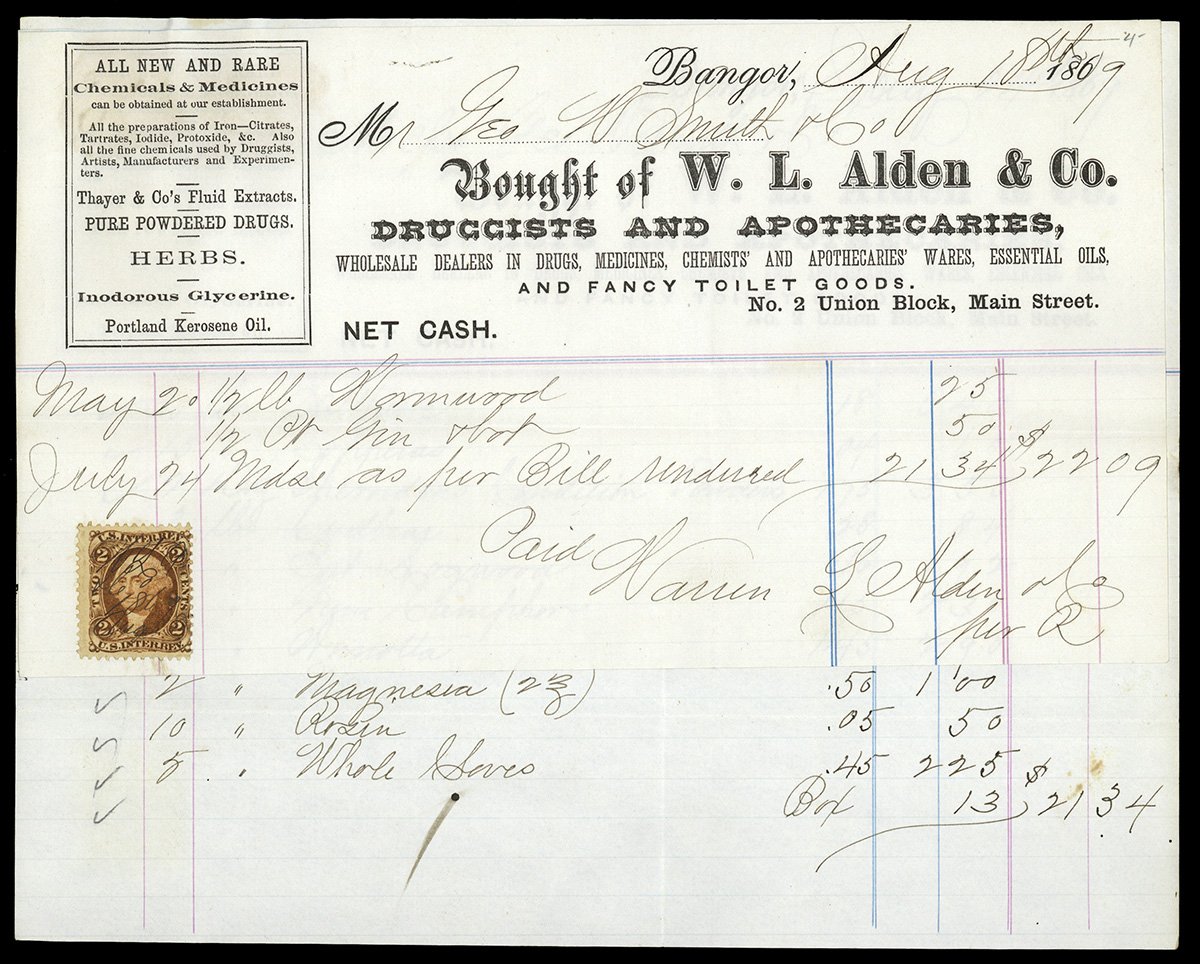 ALL NEW AND RARE
Chemicals & Medicines
can be obtained at our establishment.
All the preparations of Iron—Citrates,
Tartrates, Iodide, Protoxide, &c. Also
all the fine chemicals used by Druggists,
Artists, Manufacturers and Experimen-
ters.
Thayer & Co's Fluid Extracts.
PURE POWDERED DRUGS.
HERBS.
Inodorous Glycerine.
Portland Kerosene Oil.
Bangor, Aug 18th 1869
Mr Geo W Smith & Co
Bought of W. L. Alden & Co.
DRUGGISTS AND APOTHECARIES,
WHOLESALE DEALERS IN DRUGS, MEDICINES, CHEMISTS' AND APOTHECARIES' WARES, ESSENTIAL OILS,
AND FANCY TOILET GOODS.
No. 2 Union Block, Main Street.
NET CASH.
May 20 1/2 lb Wormwood 25
1/2 Pt Gin & bot 50
July 24 Mdse as per Bill rendered 21 34 $22 09
Paid
Warren L Alden & Co
per R
U.S. INTER. REV.
2 2
TWO CENTS
2 2
U.S. INTER. REV.
2 " Magnesia (2 ℥) .50 1 00
10 " Rosin .05 50
5 " Whole Cloves .45 2 25
Box 13 $21 34